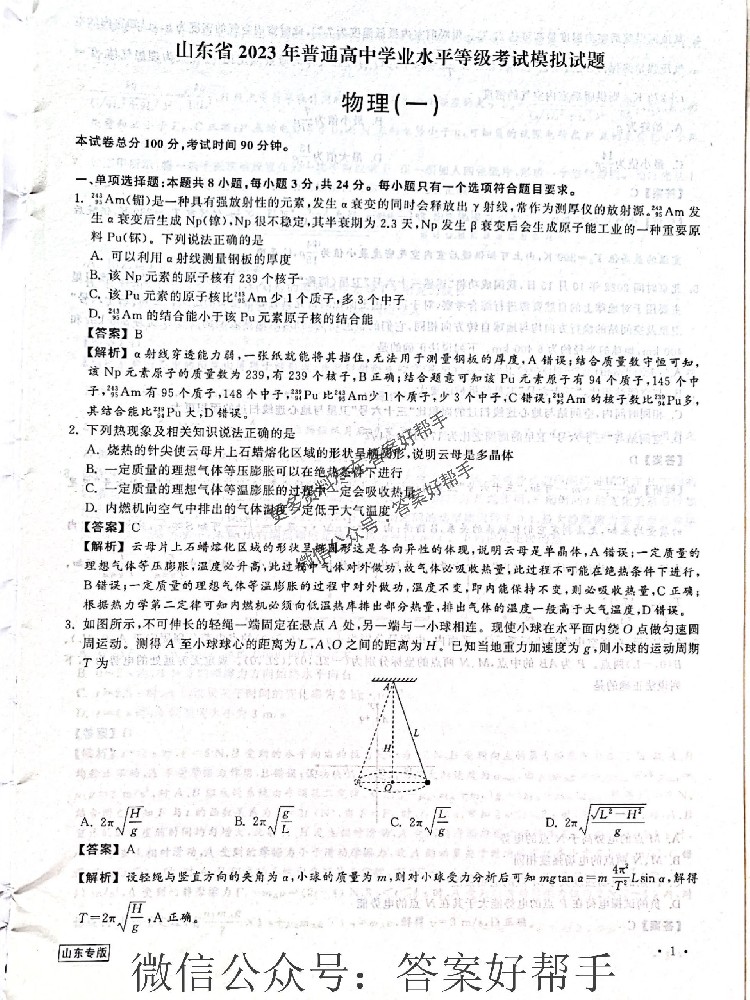 山东省 2023 年普通高中学业水平等级考试模拟试题
物理(一)
本试卷总分 100 分,考试时间 90 分钟。
一、单项选择题:本题共 8 小题,每小题 3 分,共 24 分。每小题只有一个选项符合题目要求。
1. ²⁴³₉₅Am(镅)是一种具有强放射性的元素,发生 α 衰变的同时会释放出 γ 射线,常作为测厚仪的放射源。²⁴³₉₅Am 发
生 α 衰变后生成 Np(镎),Np 很不稳定,其半衰期为 2.3 天,Np 发生 β 衰变后会生成原子能工业的一种重要原
料 Pu(钚)。下列说法正确的是
A. 可以利用 α 射线测量钢板的厚度
B. 该 Np 元素的原子核有 239 个核子
C. 该 Pu 元素的原子核比²⁴³₉₅Am 少 1 个质子,多 3 个中子
D. ²⁴³₉₅Am 的结合能小于该 Pu 元素原子核的结合能
【答案】B
【解析】α 射线穿透能力弱,一张纸就能将其挡住,无法用于测量钢板的厚度,A 错误;结合质量数守恒可知,
该 Np 元素原子的质量数为 239,有 239 个核子,B 正确;结合题意可知该 Pu 元素原子有 94 个质子,145 个中
子,²⁴³₉₅Am 有 95 个质子,148 个中子,²³⁹₉₄Pu 比²⁴³₉₅Am少 1 个质子,少 3 个中子,C 错误;²⁴³₉₅Am 的核子数比²³⁹₉₄Pu多,
其结合能比²³⁹₉₄Pu 大,D 错误。
2. 下列热现象及相关知识说法正确的是
A. 烧热的针尖使云母片上石蜡熔化区域的形状呈椭圆形,说明云母是多晶体
B. 一定质量的理想气体等压膨胀可以在绝热条件下进行
C. 一定质量的理想气体等温膨胀的过程中一定会吸收热量
D. 内燃机向空气中排出的气体温度一定低于大气温度
【答案】C
【解析】云母片上石蜡熔化区域的形状呈椭圆形这是各向异性的体现,说明云母是单晶体,A 错误;一定质量的
理想气体等压膨胀,温度必升高,此过程中气体对外做功,故气体必吸收热量,此过程不可能在绝热条件下进行,
B 错误;一定质量的理想气体等温膨胀的过程中对外做功,温度不变,即内能保持不变,则必吸收热量,C 正确;
根据热力学第二定律可知内燃机必须向低温热库排出部分热量,排出气体的温度一般高于大气温度,D 错误。
3. 如图所示,不可伸长的轻绳一端固定在悬点 A 处,另一端与一小球相连。现使小球在水平面内绕 O 点做匀速圆
周运动。测得 A 至小球球心的距离为 L,A、O 之间的距离为 H。已知当地重力加速度为 g,则小球的运动周期
T 为
A
L
H
O
A. 2π√(H/g) B. 2π√(g/L) C. 2π√(L/g) D. 2π√(√(L²−H²)/g)
【答案】A
【解析】设轻绳与竖直方向的夹角为 α,小球的质量为 m,则对小球受力分析后可知 mg tan α=m (4π²/T²) L sin α,解得
T=2π√(H/g),A 正确。
更多资料尽在答案好帮手
微信公众号:答案好帮手
山东专版
· 1 ·
微信公众号:答案好帮手